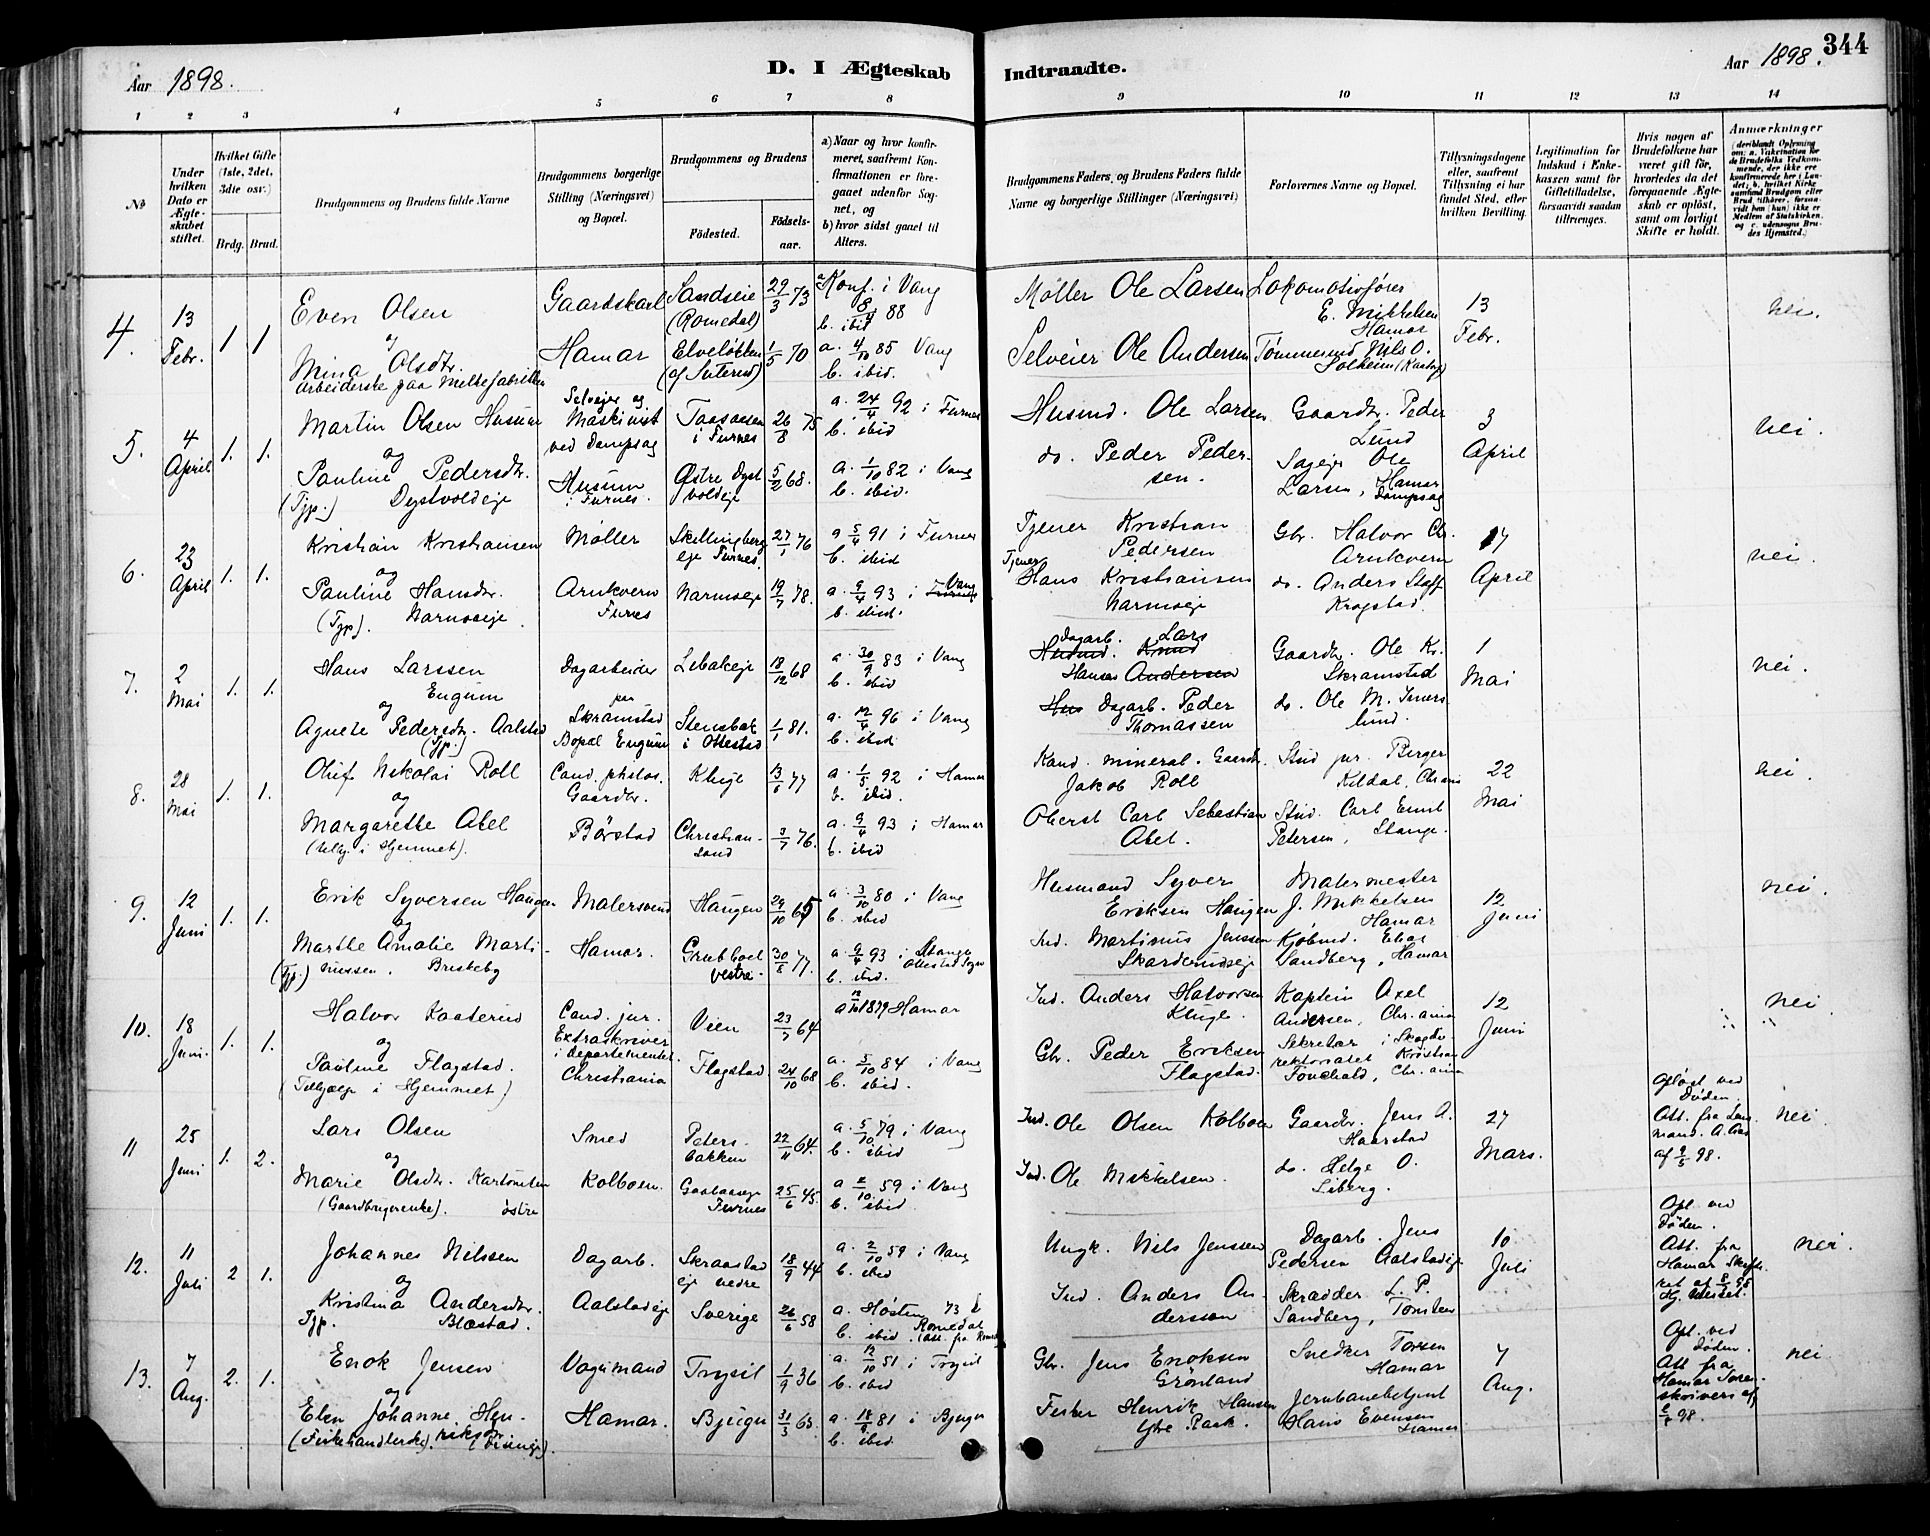 Aar 1898.
D. I Ægteskab
Indtraadte.
Aar 1898. 344
1 2 3 4 5 6 7 8 9 10 11 12 13 14
No
Under hvilken Dato er Ægteskabet stiftet.
Hvilket Gifte (1ste, 2det, 3die osv.)
Brdg. Brud.
Brudgommens og Brudens fulde Navne
Brudgommens borgerlige Stilling (Næringsvei) og Bopæl.
Brudgommens og Brudens
Fødested.
Fødselsaar.
a) Naar og hvor konfirmeret, saafremt Konfirmationen er foregaaet udenfor Sognet, og
b) hvor sidst gaaet til Alters.
Brudgommens Faders, og Brudens Faders fulde Navne og borgerlige Stillinger (Næringsvei)
Forlovernes Navne og Bopæl.
Tillysningsdagene eller, saafremt Tillysning ei har fundet Sted, efter hvilken Bevilling.
Legitimation for Indskud i Enkekassen samt for Giftetilladelse, forsaavidt saadan tiltrænges.
Hvis nogen af Brudefolkene har været gift før, hvorledes da det foregaaende Ægteskab er opløst, samt om lovligt Skifte er holdt.
Anmærkninger
4. 13 Febr. 1 1
Even Olsen
og
Mina Olsdtr.
Arbeiderske paa Melkefabrikken
Gaardskarl
Hamar
Sandseie (Romedal) 29/3 73
Elveløkken 1/5 70
Konf. i Vang 88
b. ibid
a. 4/10 85 Vang
b. ibid.
Møller Ole Larsen
Selveier Ole Andersen
Lokomotivfører E. Mikkelsen Hamar
Nils O. Solheim
13 Febr.
nei.
5. 4 April 1. 1.
Martin Olsen Husum
og
Pauline Pedersdtr.
(Tjp.) Dystvoldeje
Selvejer og Maskinist ved Dampsag
Husum i Furnes.
i Furnes 26/8 75
Østre Dystvoldeje 5/2 68.
a. 24/4 92 i Furnes
b. ibid
a. 1/10 82 i Vang
b. ibid.
Husmd. Ole Larsen
do. Peder Pedersen.
Gaardbr. Peder Lund
Sagejer Ole Larsen, Hamar Dampsag
3 April
nei.
6. 23 April 1. 1.
Kristian Kristiansen
og
Pauline Hansdtr.
(Tjp). Narmoeje
Møller
Arnkvern Furnes
Skellingberg eje Furnes. 27/1 76
Narmoeje 19/7 78.
a 5/4 91 i Furnes
b. ibid
a. 9/4 93 i Vang
b. ibid.
Tjener Kristian Pedersen
Tjener Hans Kristiansen Narmoeje
Gbr. Halvor Chr. Arnkvern
do. Anders Staff Kragstad.
17 April
nei.
7. 2 Mai 1. 1.
Hans Larssen Engum
og
Agnete Pedersdtr. Aalstad
(Tjp.)
Dagarbeider paa Skramstad
Bopæl Engum
Lebakeje 18/12 68
Stensbak i Ottestad 1/1 81.
a. 30/9 83 i Vang
b. ibid
a. 12/4 96 i Vang
b. ibid.
Dagarb. Lars
Husmd. Knud
Hansen Andersen
Hus Dagarb. Peder Thomassen
Gaardbr. Ole Kr. Skramstad
do. Ole M. Imerslund.
1 Mai
nei.
8. 28 Mai 1. 1.
Oluf Nikolai Roll
og
Margarethe Abel
(i Hjemmet).
Cand. philos. Gaardbr.
Børstad
Kluge 13/6 77
Christiansand 3/7 76.
a. 1/5 92 i Hamar
b. ibid.
a. 9/4 93 i Hamar
b. ibid
Kand. mineral. Gaardbr. Jakob Roll
Oberst Carl Sebastian Abel.
Stud jur. Birger Kildal, Chr.ania
Stud. Carl Ernst Petersen, Stange.
22 Mai
nei.
9. 12 Juni 1. 1.
Erik Syversen Haugen
og
Marthe Amalie Martinussen.
(Tjp.) Briskeby
Malersvend
Hamar.
Haugen 29/10 65
vestre. 30/8 77.
a. 3/10 80 i Vang
b. ibid
a. 9/4 93 i Stange Ottestad Sogn
b. ibid.
Husmand Syver Eriksen Haugen
Ind. Martinus Jenssen Skarderudseje
Malermester J. Mikkelsen Hamar
Kjøbmd. Einar Sandberg, Hamar
12 Juni
nei.
10. 18 Juni. 1. 1.
Halvor Kaaterud
og
Pauline Flagstad.
(Tilhjælp i Hjemmet)
Cand. jur. Extraskriver i departementet.
Christiania
Vien 23/7 64
Flagstad 24/10 68
1879 Hamar
a. 5/10 84 i Vang
b. ibid.
Ind. Anders Halvorsen Kluge.
Gbr. Peder Eriksen Flagstad.
Kaptein Axel Andersen, Chr.ania
Sekretær i Skogdirektoriatet Kristian Fonahald, Chr.ania
12 Juni
nei
11 25 Juni 1. 2.
Lars Olsen
og
Marie Olsdtr. Kartomten
(Gaardbrugerenke). østre
Smed
Kolboen.
Petersbakken 22/11 64.
Furnes 25/6 45.
a. 5/10 79 i Vang
b. ibid
a. 2/10 59 i Vang
b. ibid.
Ind. Ole Olsen Kolboen
Ind. Ole Mikkelsen.
Gaardbr. Jens A. Haarstad
do. Helge O. Liberg.
27 Mars.
Opløst ved Døden.
Att. fra Lensmand. A. Aas af 9/5 98.
nei.
12. 11 Juli 2 1.
Johannes Nilssen
og
Kristina Andersdtr.
Tjp. Blæstad.
Dagarb.
Aalstadeje
Skraastad eje nedre 18/9 44
Sverige 26/6 58
a. 2/10 59 i Vang
b. ibid.
a. Høsten 73 i Romedal
b. ibid.
Ungk. Nils Jenssen
Ind. Anders Anderssen
Dagarb. Jens Pedersen Aalstadeje
Skrædder L. P. Sandberg, Tomten
10 Juli
Opl. ved Døden.
Att. fra Hamar Skifteret
nei.
13. 7 Aug. 2. 1.
Enok Jensen
og
Elen Johanne Henriksdtr.
(Fiskehandlerske).
Vognmand
Hamar.
Trysil 1/9 36
Bjugn 31/3 63.
a. 12/10 51 i Trysil
b. ibid.
a. 18/9 81 i Bjugn
b. ibid.
Gbr. Jens Enoksen Grønland
Fisker Henrik Hansen
Snedker Torsen Hamar
Jernbanebetjent Hans Evensen Hamar
7 Aug.
Opl. ved Døden.
Att fra Hamar Sorenskriveri af 98.
nei